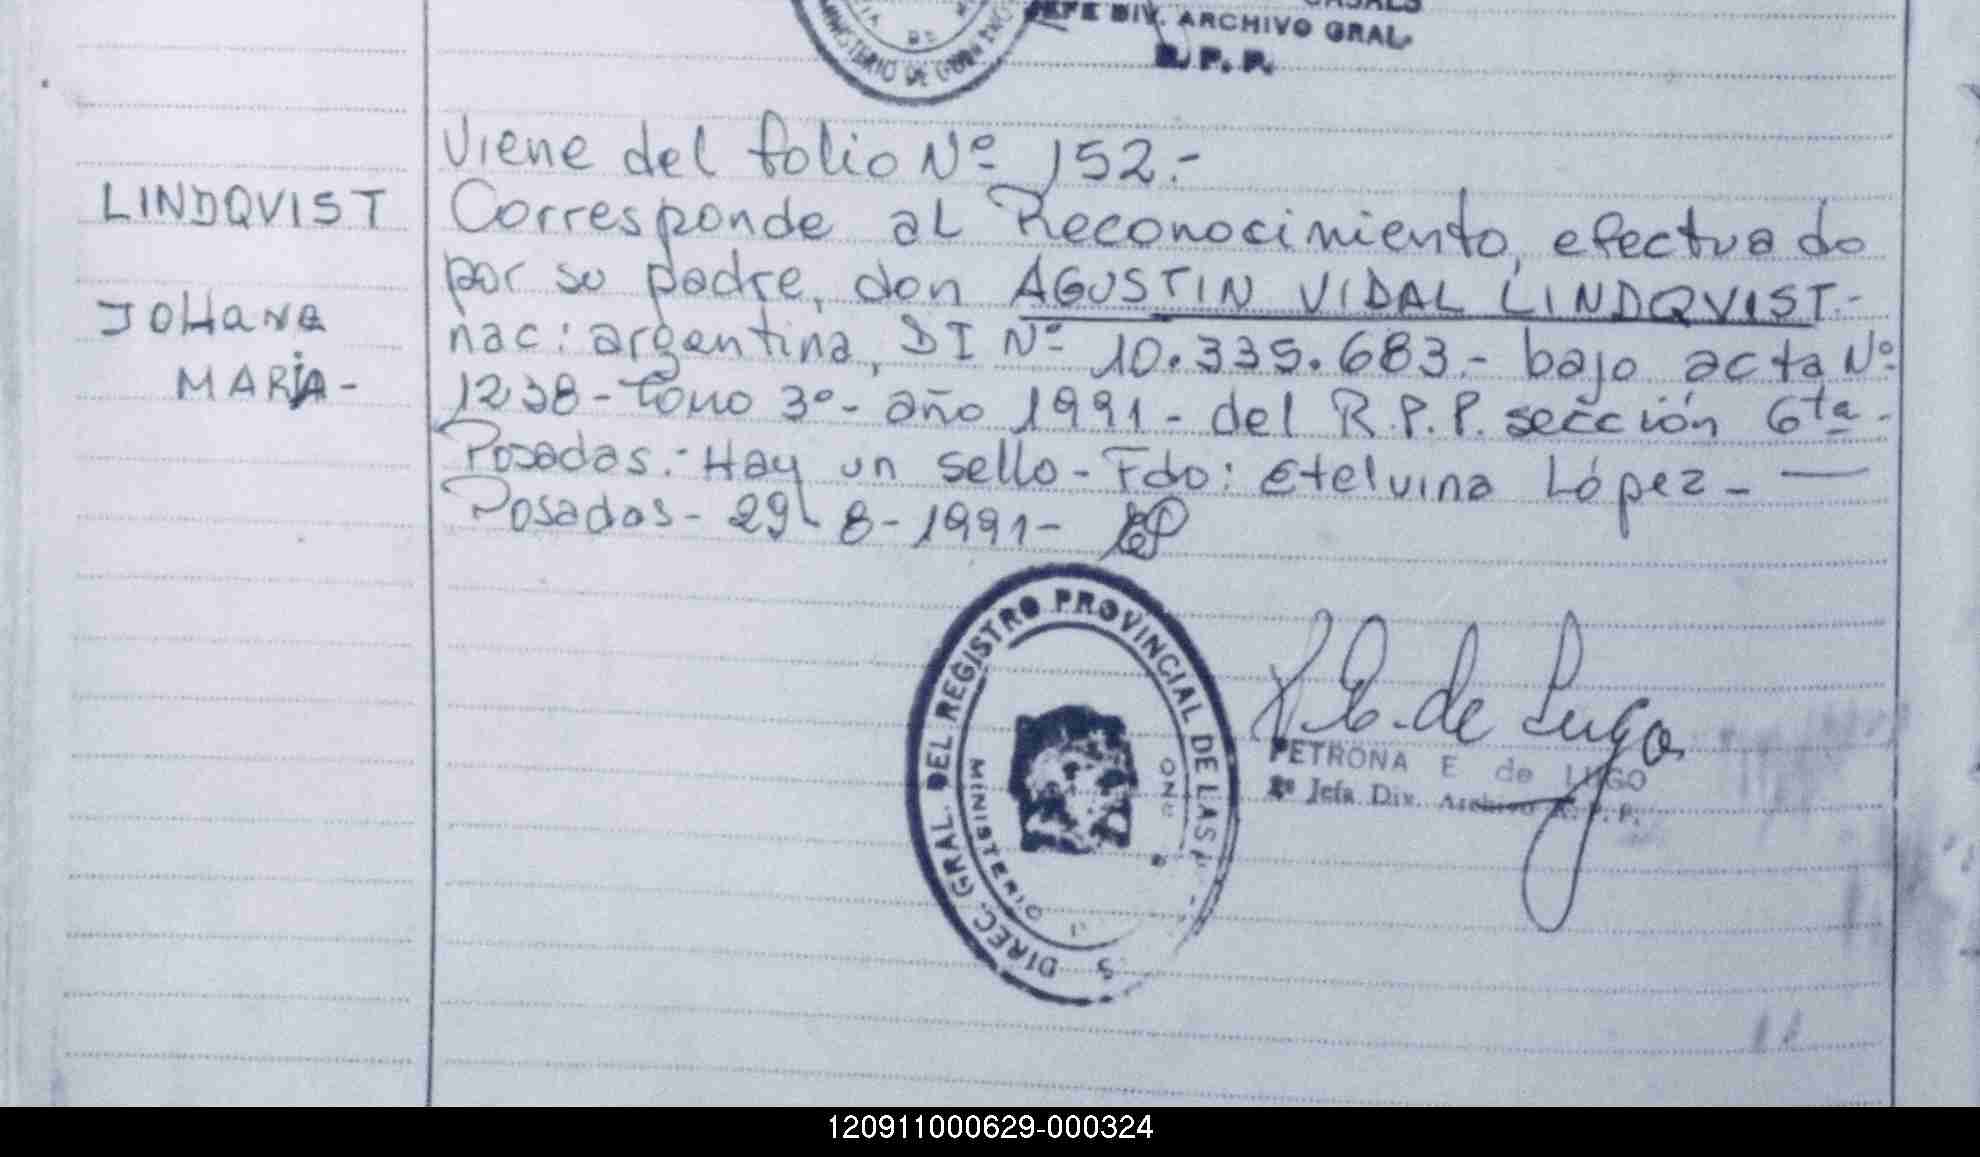 JEFE DIV. ARCHIVO GRAL.
R. P. P.
MINISTERIO DE
Viene del folio Nº 152.-
LINDQVIST
JOHANA
MARIA-
Corresponde al Reconocimiento, efectuado
por su padre, don AGUSTIN VIDAL LINDQVIST.-
nac: argentina, DI Nº 10.335.683.- bajo acta Nº
1238- Tomo 3º- año 1991- del R.P.P. sección 6ta.
Posadas.- Hay un sello- Fdo: Etelvina López- —
Posadas- 29- 8-1991-
DIREC. GRAL. DEL REGISTRO PROVINCIAL DE LAS
MINISTERIO
P. E. de Lugo
PETRONA E de LUGO
2º Jefa Div. Archivo R. P. P.
120911000629-000324